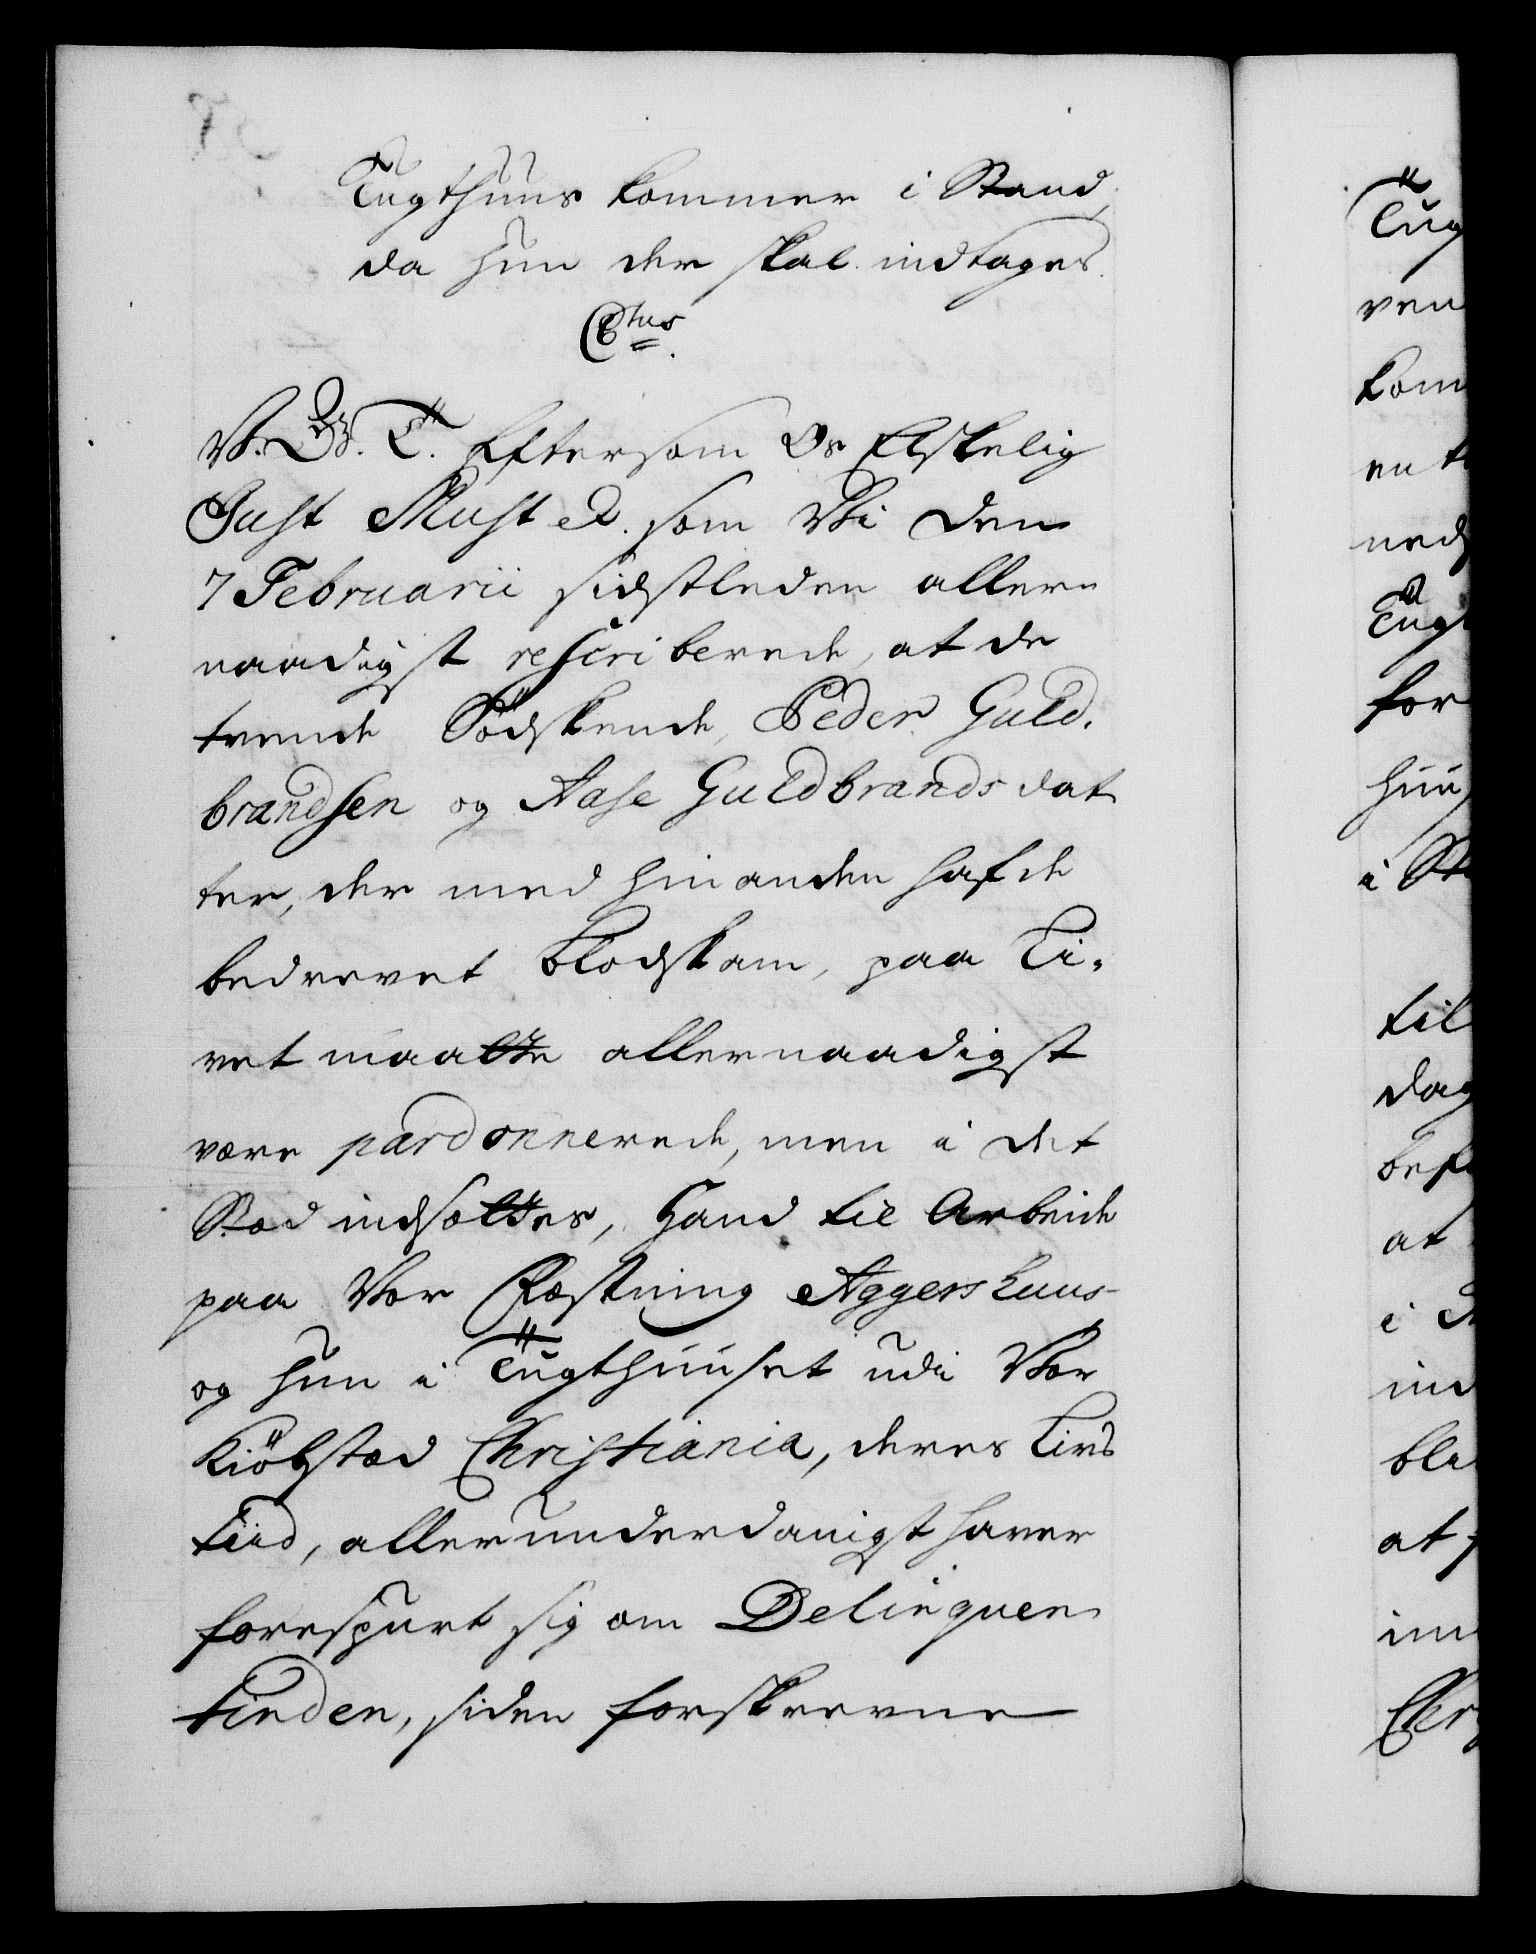 Tugthuus kommer i Stand,
da hun der skal indtages.
C6tus.
V. G. T. Eftersom Os Elskelig
Just Must etc. som Vi den
7 Februarii sidstleden aller-
naadigst rescriberede, at de
trende Sødskende, Peder Guld-
brandsen og Aase Guldbrandsdat-
ter, der med hinanden hafde
bedrevet Blodskam, paa Li-
vet maatte allernaadigst
være pardonnerede, men i det
Stæd indsættes, Hand til Arbeide
paa Vor Fæstning Aggershuus
og hun i Tugthuuset udi Vor
Kiøbstæd Christiania, deres Livs
Tiid, allerunderdanigst haver
forespurt sig om Delinquen-
tinden, siden forskrevne
Tug
ven
kom
en t
ned
Tugt
for
huu
i St
til
dag
bef
at
i
ind
ble
at
im
Chri